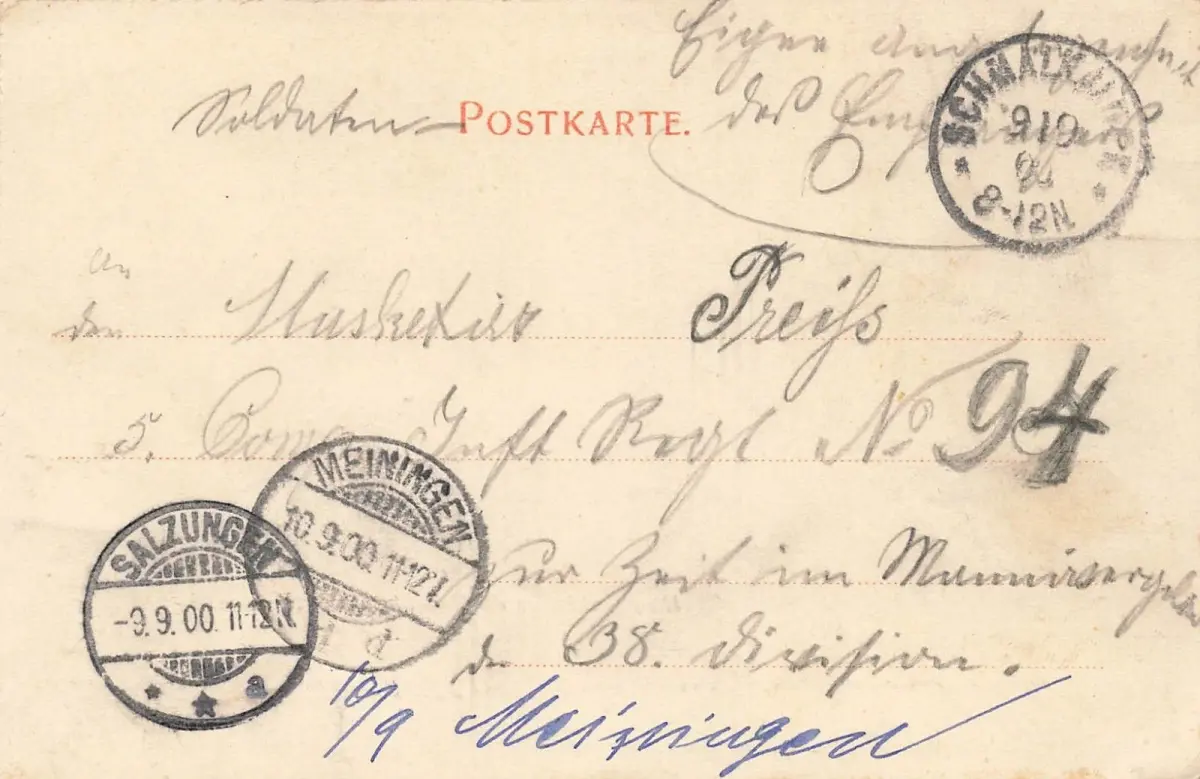 Eigene Angelegenheit
Soldaten- POSTKARTE. des Empfängers
SCHMALKALDEN
9 10
8-12N.
an
den Musketier Preiß
5. Comp Inft Regt No 94
MEININGEN
10.9.00.11-12V.
SALZUNGEN
-9.9.00.11-12N.
a
zur Zeit im Manöver
d 38. Division.
10/9 Meiningen